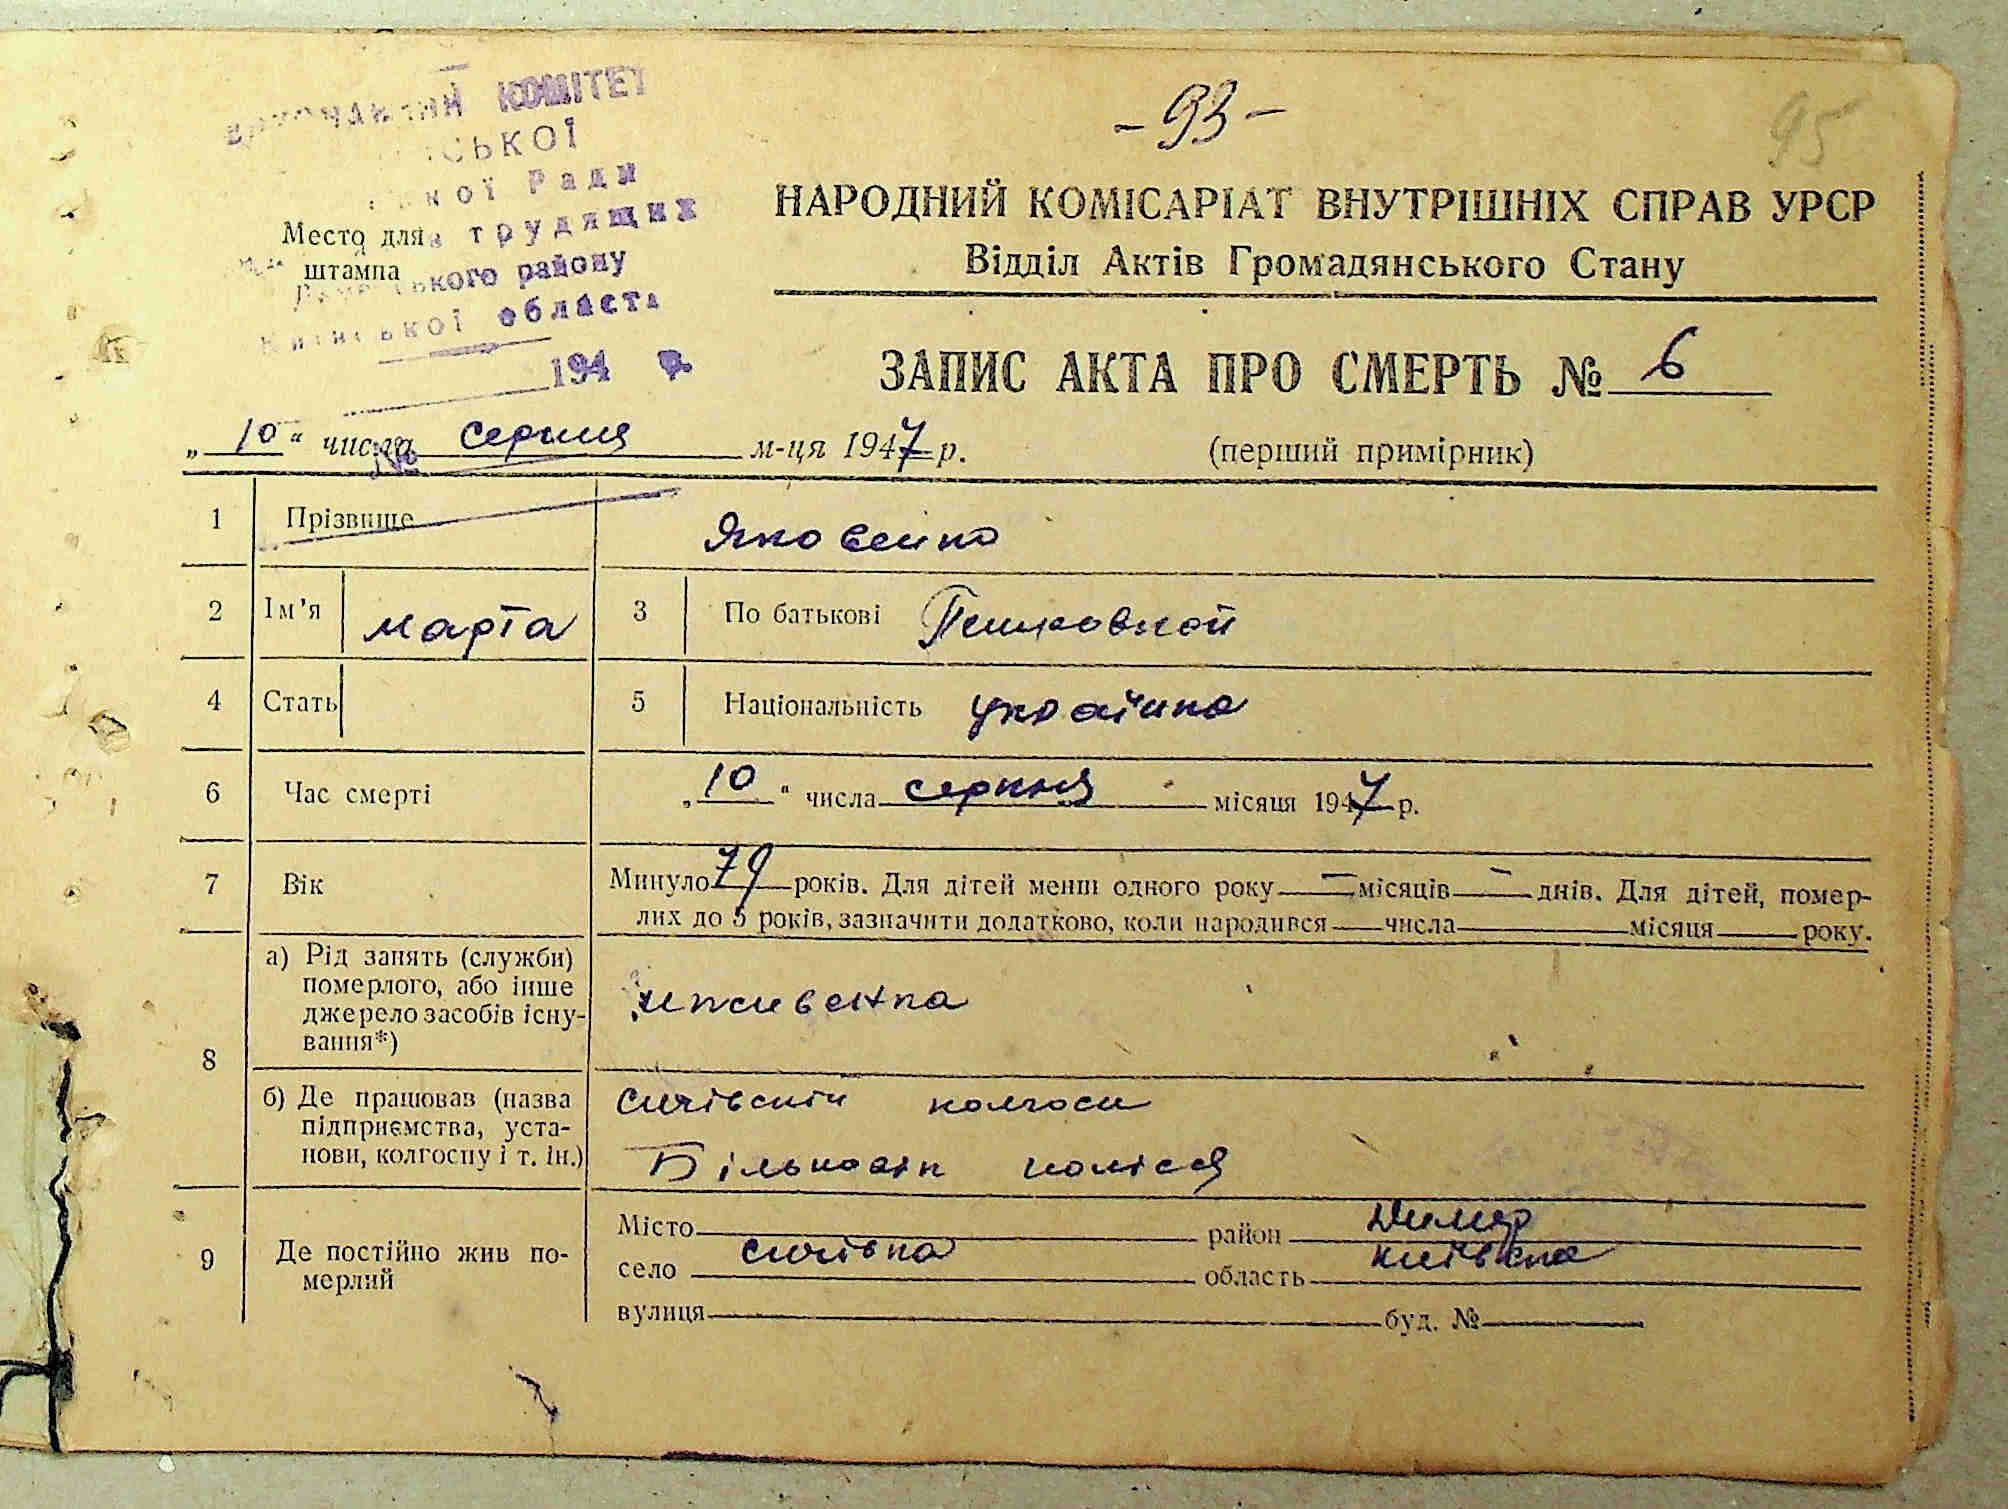 КОМІТЕТ
Ради
трудящих
Место для
штампа
ького району
області
194 р.
№
- 93 -
95
НАРОДНИЙ КОМІСАРІАТ ВНУТРІШНІХ СПРАВ УРСР
Відділ Актів Громадянського Стану
ЗАПИС АКТА ПРО СМЕРТЬ № 6
„ 10 “ числа серпня м-ця 1947 р. (перший примірник)
1 Прізвище Яковенко
2 Ім'я марта 3 По батькові
4 Стать 5 Національність українка
6 Час смерті „ 10 “ числа серпня місяця 1947 р.
7 Вік Минуло 79 років. Для дітей менш одного року — місяців — днів. Для дітей, помер-
лих до 5 років, зазначити додатково, коли народився числа місяця року.
8 а) Рід занять (служби)
померлого, або інше
джерело засобів існу-
вання*)
иживенка
б) Де працював (назва
підприємства, уста-
нови, колгоспу і т. ін.)
колгосп
полісся
9 Де постійно жив по-
мерлий
Місто район Димер
село Сичівка область київска
вулиця буд. №